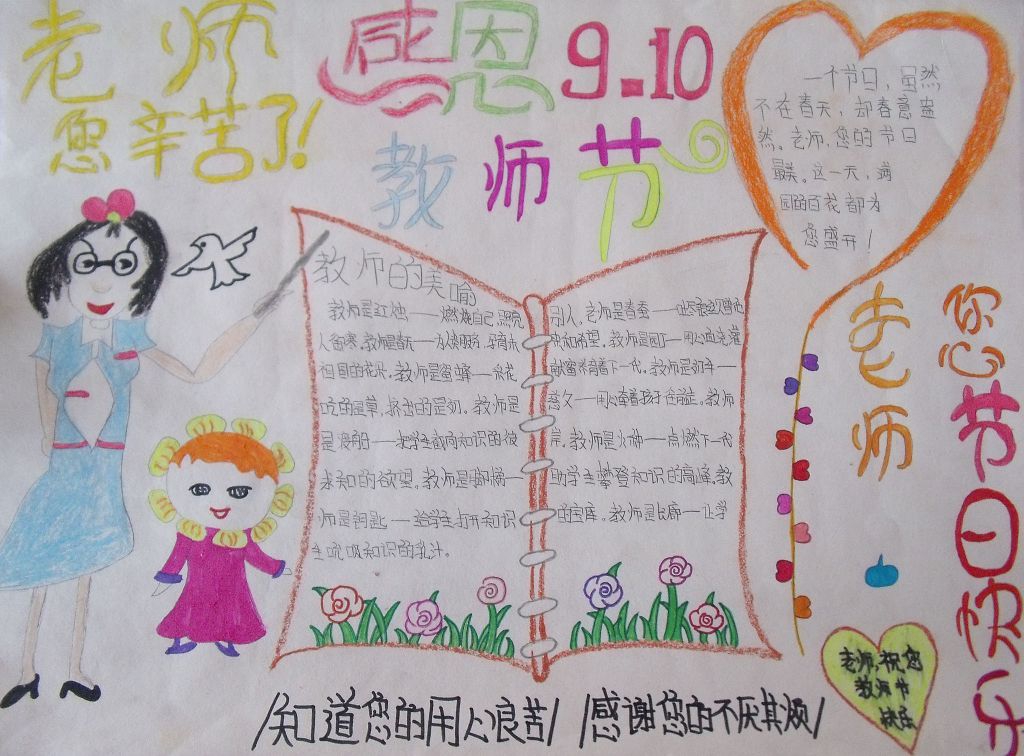 老师
您辛苦了!
感恩9.10
教师节
一个节日,虽然
不在春天,却春意盎
然。老师,您的节日
最美。这一天,满
园的百花都为
您盛开!
教师的美喻
教师是红烛——燃烧自己,照亮
别人。老师是春蚕——吐
人御寒。教师是春天——孕育未
来和希望。教师是园丁——用心血浇灌
祖国的花朵。教师是蜜蜂——采花
酿蜜养育着下一代。教师是奶牛——
吃的是草,挤出的是奶。教师是
慈父——用心牵着孩子往前走。教师
是渡船——把学生载向知识的彼
岸。教师是火种——点燃下一代
求知的欲望。教师是脚梯——
助学生攀登知识的高峰。教
师是钥匙——给学生打开知识
的宝库。教师是长廊——让学
生吮吸知识的乳汁。
老师
您节日快乐
老师,祝您
教师节
快乐
知道您的用心良苦
感谢您的不厌其烦